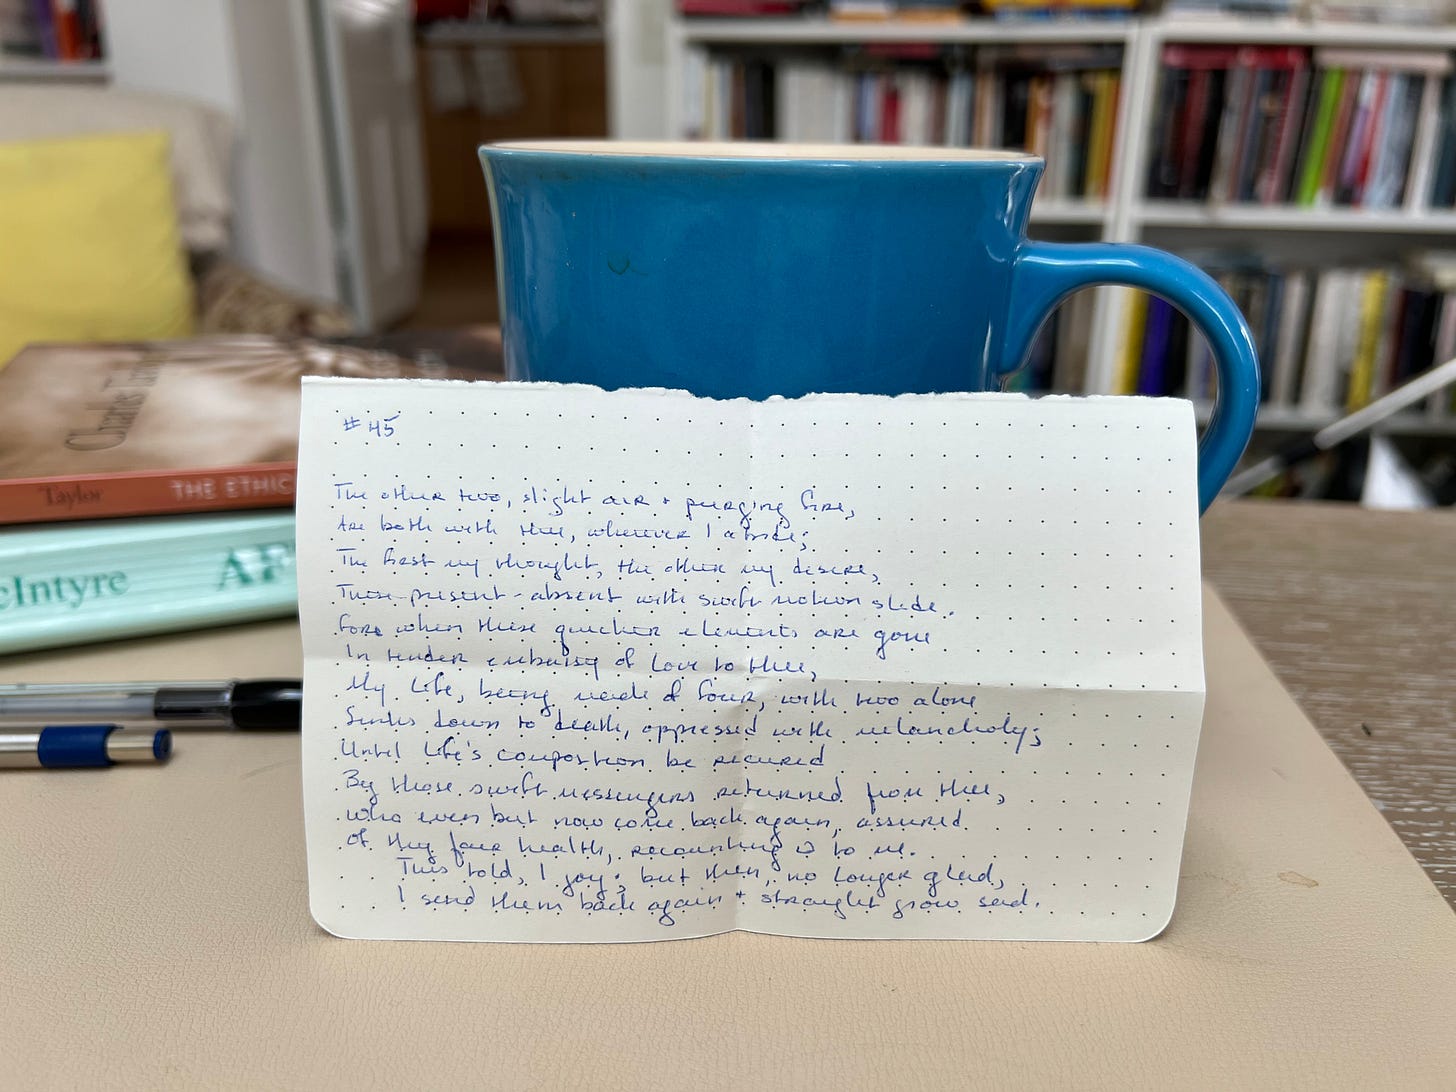 Charles Taylor
Taylor THE ETHIC
cIntyre AF
#45
The other two, slight air + purging fire,
Are both with thee, wherever I abide;
The first my thought, the other my desire,
These present-absent with swift motion slide.
For when these quicker elements are gone
In tender embassy of Love to thee,
My Life, being made of four, with two alone
Sinks down to death, oppressed with melancholy;
Until Life's composition be recured
By those swift messengers returned from thee,
Who even but now come back again, assured
Of thy fair health, recounting it to me.
This told, I joy; but then, no longer glad,
I send them back again + straight grow sad.